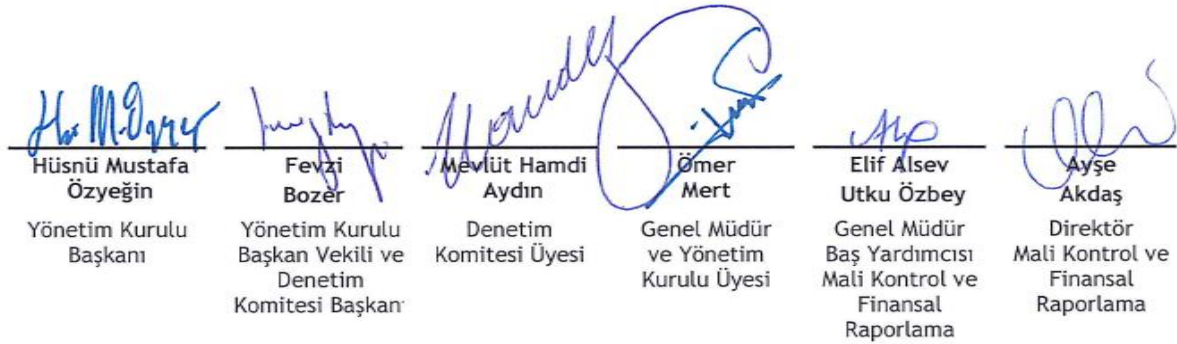 Hüsnü Mustafa
Özyeğin
Yönetim Kurulu
Başkanı
Fevzi
Bozer
Yönetim Kurulu
Başkan Vekili ve
Denetim
Komitesi Başkanı
Mevlüt Hamdi
Aydın
Denetim
Komitesi Üyesi
Ömer
Mert
Genel Müdür
ve Yönetim
Kurulu Üyesi
Elif Alsev
Utku Özbey
Genel Müdür
Baş Yardımcısı
Mali Kontrol ve
Finansal
Raporlama
Ayşe
Akdaş
Direktör
Mali Kontrol ve
Finansal
Raporlama